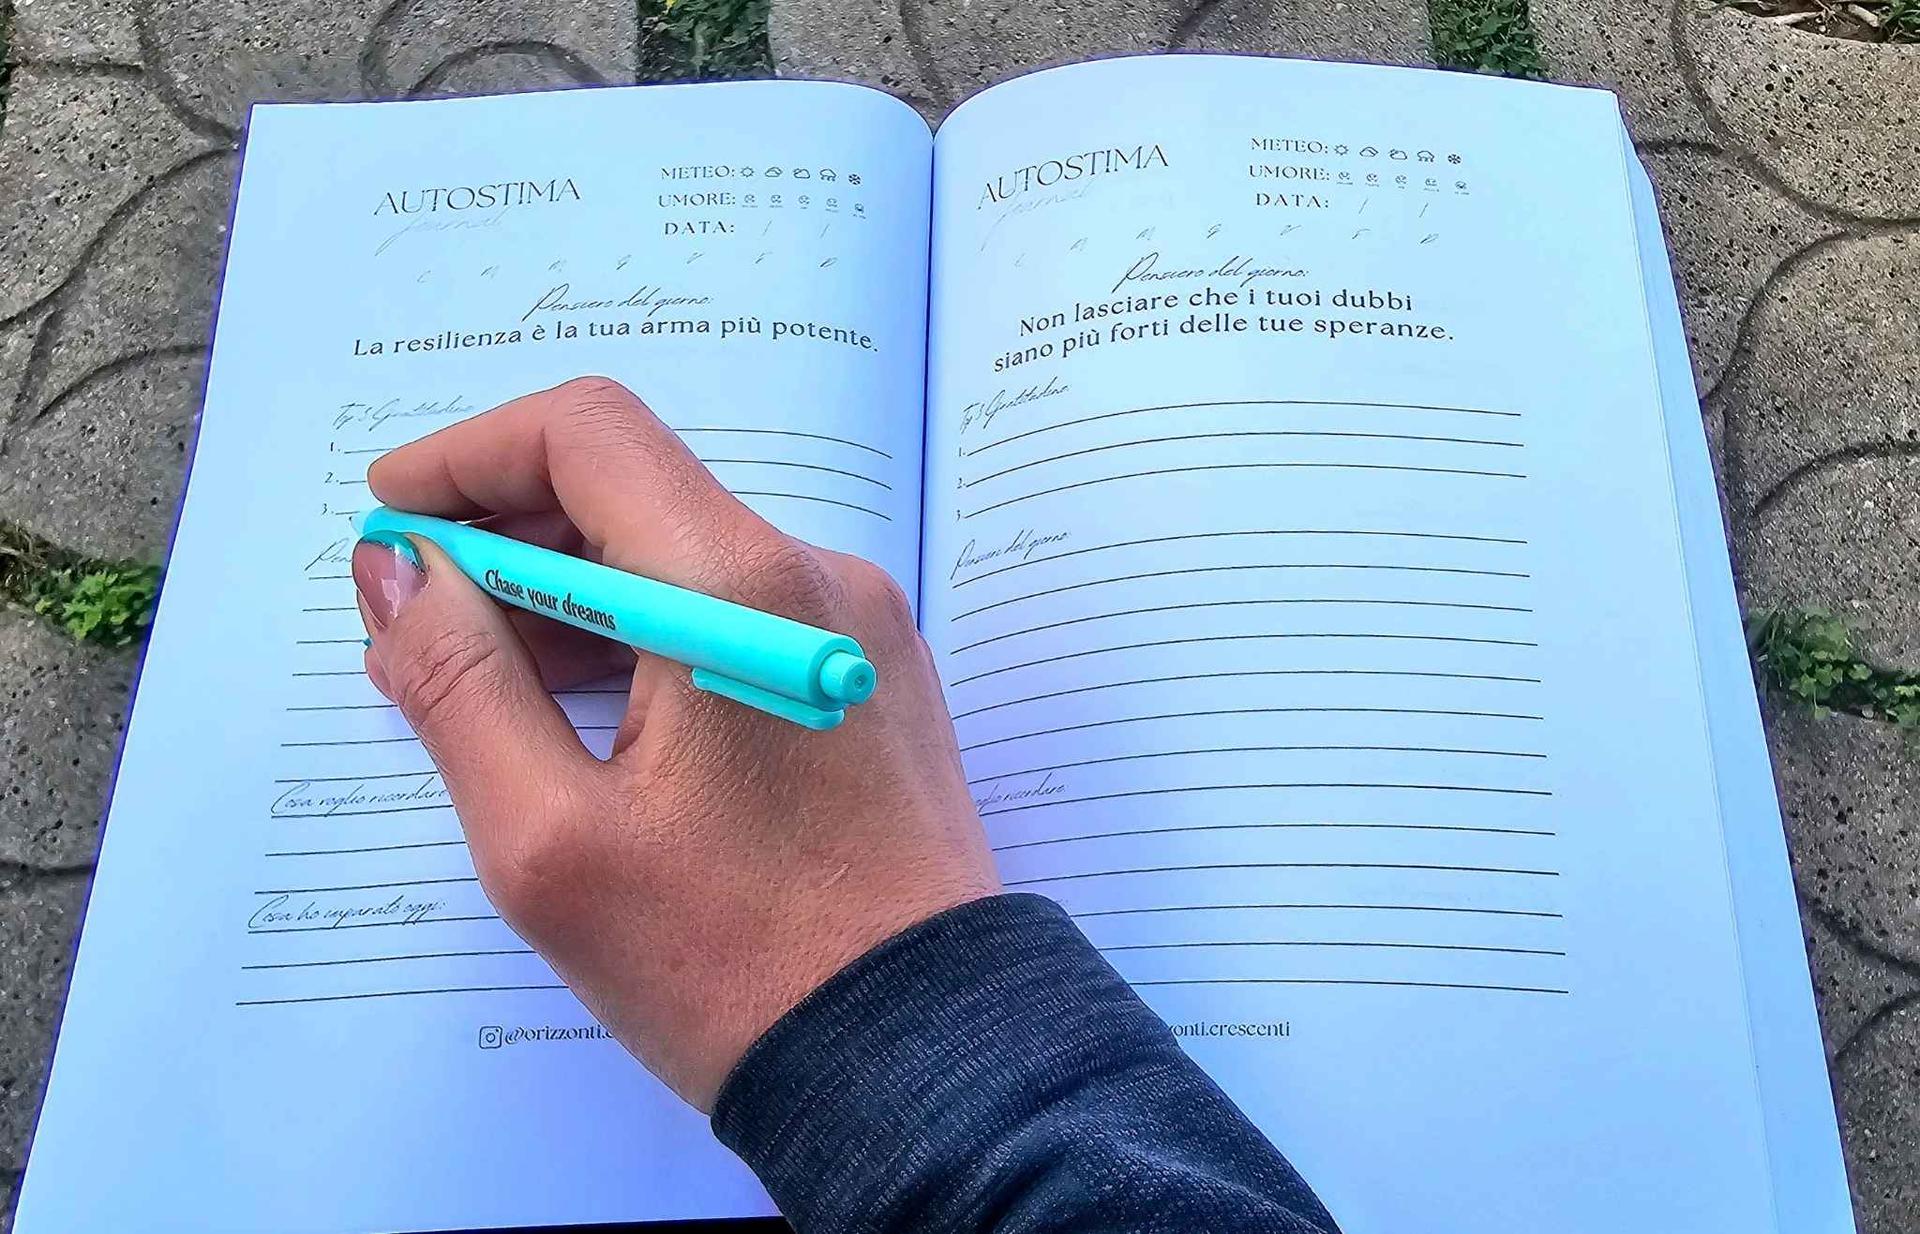 AUTOSTIMA
journal
METEO:
UMORE:
DATA: / /
L M M G V S D
Pensiero del giorno:
La resilienza è la tua arma più potente.
Top 3 Gratitudine
1.
2.
3.
Cosa voglio ricordare
Cosa ho imparato oggi:
@orizzonti.
AUTOSTIMA
journal
METEO:
UMORE:
DATA: / /
L M M G V S D
Pensiero del giorno:
Non lasciare che i tuoi dubbi
siano più forti delle tue speranze.
Top 3 Gratitudine
1.
2.
3.
Pensieri del giorno:
voglio ricordare
onti.crescenti
Chase your dreams